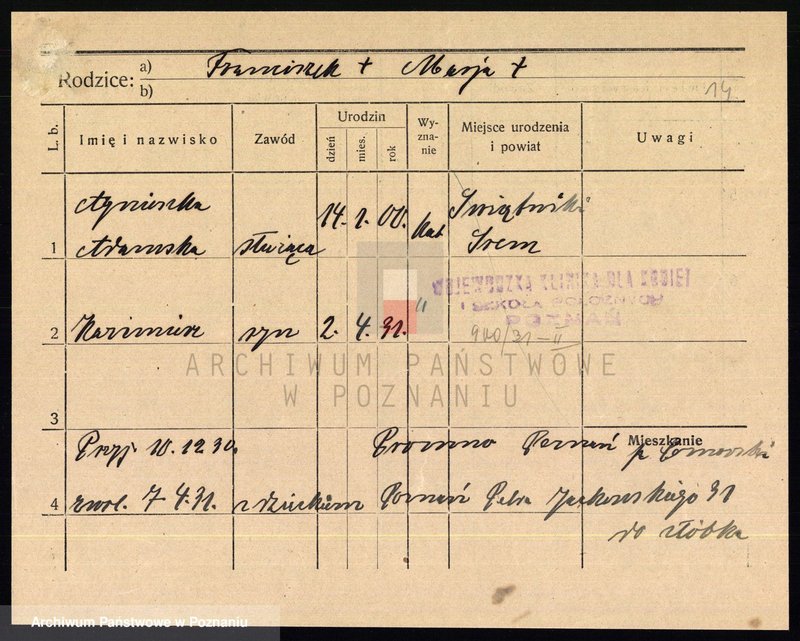 Rodzice: a) Franciszek + Marja +
b)
14
L. b.
Imię i nazwisko
Zawód
Urodzin
dzień
mies.
rok
Wy-
zna-
nie
Miejsce urodzenia
i powiat
Uwagi
Agnieszka
Adamska służąca 14. 1. 00. kat Świątniki
1 Śrem
WOJEWÓDZKA KLINIKA DLA KOBIET
I SZKOŁA POŁOŻNYCH
POZNAŃ
2 Kazimierz syn 2. 4. 31. "
940/31-II
ARCHIWUM PAŃSTWOWE
W POZNANIU
3
Przyj 10.12.30. Promno Poznań Mieszkanie
4 zwol. 7 4.31. z dzieckiem Poznań Jackowskiego 31
do żłóbka
Archiwum Państwowe w Poznaniu